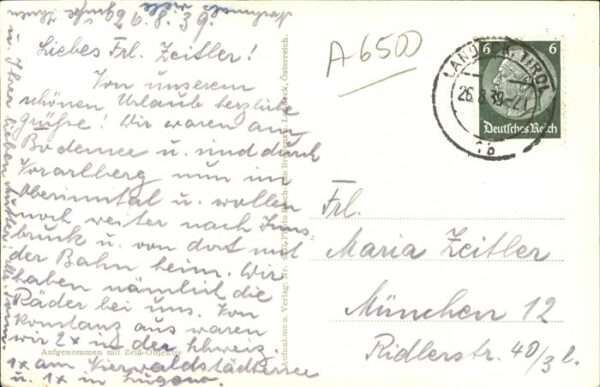 Nochmals viele Grüsse Ihnen
u. Ihrer lieben Mutter.
26.8.39.
Liebes Frl. Zeitler!
Von unserem
schönen Urlaub herzliche
Grüße! Wir waren am
Bodensee u. sind durch
Vorarlberg nun im
Oberinntal u. wollen
noch weiter nach Inns
bruck u. von dort mit
der Bahn heim. Wir
haben nämlich die
Räder bei uns. Von
Konstanz aus waren
wir 2x in der Schweiz.
1x am Vierwaldstädtersee
u. 1x in Lugano.
Aufgenommen mit Zeiss-Objektiv
Landeck, Österreich.
A 6500
LANDECK, TIROL
26.8.39
6 6
Deutsches Reich
Frl.
Maria Zeitler
München 12
Ridlerstr. 40/3 l.